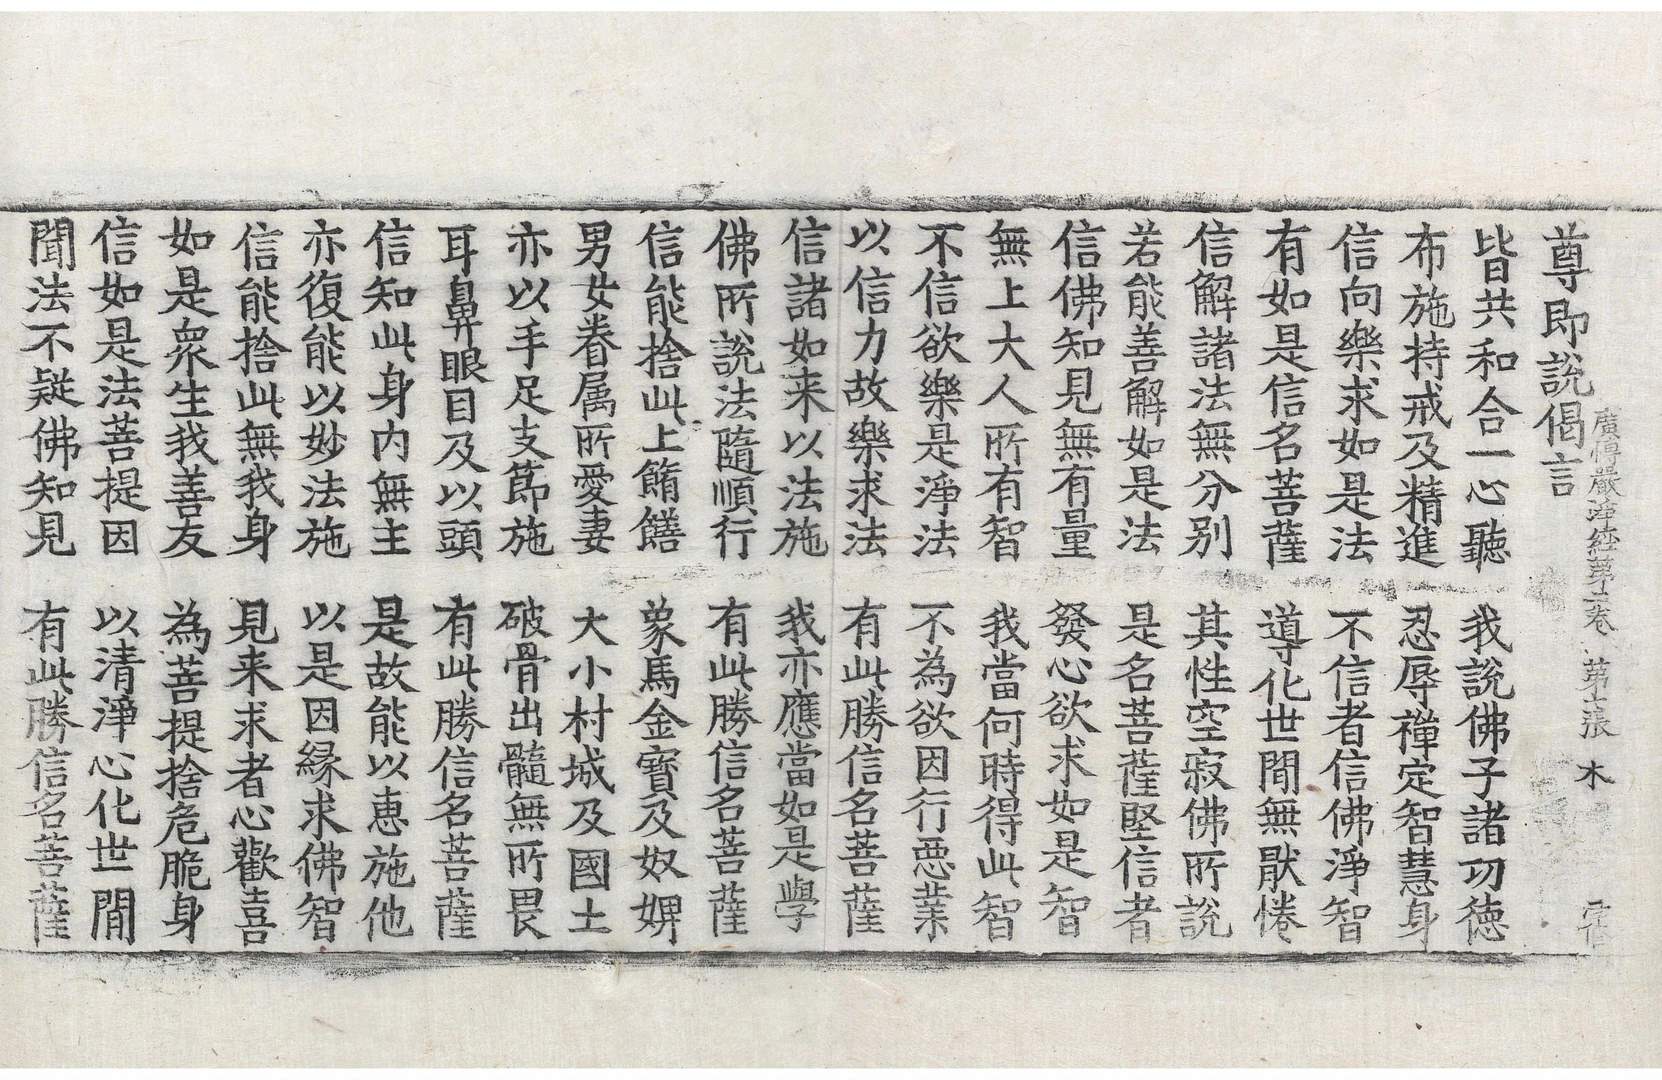 尊即說偈言
皆共和合一心聽 我說佛子諸功德
布施持戒及精進 忍辱禪定智慧身
信向樂求如是法 不信者信佛淨智
有如是信名菩薩 導化世間無猒惓
信解諸法無分别 其性空寂佛所說
若能善解如是法 是名菩薩堅信者
信佛知見無有量 發心欲求如是智
無上大人所有智 我當何時得此智
不信欲樂是淨法 不為欲因行惡業
以信力故樂求法 有此勝信名菩薩
信諸如来以法施 我亦應當如是學
佛所說法隨順行 有此勝信名菩薩
信能捨此上餚饍 象馬金寶及奴婢
男女眷属所愛妻 大小村城及國土
亦以手足支節施 破骨出髓無所畏
耳鼻眼目及以頭 有此勝信名菩薩
信知此身内無主 是故能以惠施他
亦復能以妙法施 以是因緣求佛智
信能捨此無我身 見来求者心歡喜
如是衆生我善友 為菩提捨危脆身
信如是法菩提因 以清淨心化世間
聞法不疑佛知見 有此勝信名菩薩